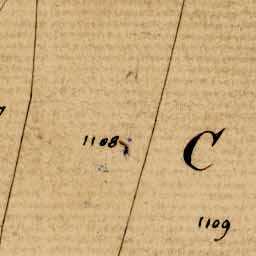 1108
C
1109